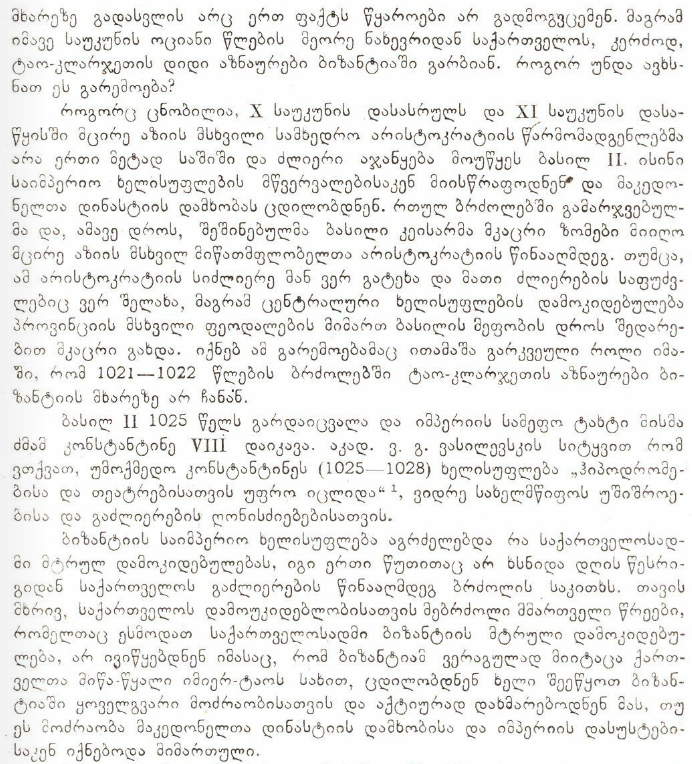 მხარეზე გადასვლის არც ერთ ფაქტს წყაროები არ გადმოგვცემენ. მაგრამ
იმავე საუკუნის ოციანი წლების მეორე ნახევრიდან საქართველოს, კერძოდ,
ტაო-კლარჯეთის დიდი აზნაურები ბიზანტიაში გარბიან. როგორ უნდა ავხს-
ნათ ეს გარემოება?
როგორც ცნობილია, X საუკუნის დასასრულს და XI საუკუნის დასა-
წყისში მცირე აზიის მსხვილი სამხედრო არისტოკრატიის წარმომადგენლებმა
არა ერთი მეტად საშიში და ძლიერი აჯანყება მოუწყეს ბასილ II. ისინი
საიმპერიო ხელისუფლების მწვერვალებისაკენ მიისწრაფოდნენ და მაკედო-
ნელთა დინასტიის დამხობას ცდილობდნენ. რთულ ბრძოლებში გამარჯვებულ-
მა და, ამავე დროს, შეშინებულმა ბასილი კეისარმა მკაცრი ზომები მიიღო
მცირე აზიის მსხვილ მიწათმფლობელთა არისტოკრატიის წინააღმდეგ. თუმცა,
ამ არისტოკრატიის სიძლიერე მან ვერ გატეხა და მათი ძლიერების საფუძვ-
ლებიც ვერ შელახა, მაგრამ ცენტრალური ხელისუფლების დამოკიდებულება
პროვინციის მსხვილი ფეოდალების მიმართ ბასილის მეფობის დროს შედარე-
ბით მკაცრი გახდა. იქნებ ამ გარემოებამაც ითამაშა გარკვეული როლი იმა-
ში, რომ 1021—1022 წლების ბრძოლებში ტაო-კლარჯეთის აზნაურები ბი-
ზანტიის მხარეზე არ ჩანან.
ბასილ II 1025 წელს გარდაიცვალა და იმპერიის სამეფო ტახტი მისმა
ძმამ კონსტანტინე VIII დაიკავა. აკად. ვ. გ. ვასილევსკის სიტყვით რომ
ვთქვათ, უმოქმედო კონსტანტინეს (1025—1028) ხელისუფლება „ჰიპოდრომე-
ბისა და თეატრებისათვის უფრო იცლიდა“ ¹, ვიდრე სახელმწიფოს უშიშროე-
ბისა და გაძლიერების ღონისძიებებისათვის.
ბიზანტიის საიმპერიო ხელისუფლება აგრძელებდა რა საქართველოსად-
მი მტრულ დამოკიდებულებას, იგი ერთი წუთითაც არ ხსნიდა დღის წესრი-
გიდან საქართველოს გაძლიერების წინააღმდეგ ბრძოლის საკითხს. თავის
მხრივ, საქართველოს დამოუკიდებლობისათვის მებრძოლი მმართველი წრეები,
რომელთაც ესმოდათ საქართველოსადმი ბიზანტიის მტრული დამოკიდებუ-
ლება, არ ივიწყებდნენ იმასაც, რომ ბიზანტიამ ვერაგულად მიიტაცა ქართ-
ველთა მიწა-წყალი იმიერ-ტაოს სახით, ცდილობდნენ ხელი შეეწყოთ ბიზან-
ტიაში ყოველგვარი მოძრაობისათვის და აქტიურად დახმარებოდნენ მას, თუ
ეს მოძრაობა მაკედონელთა დინასტიის დამხობისა და იმპერიის დასუსტები-
საკენ იქნებოდა მიმართული.